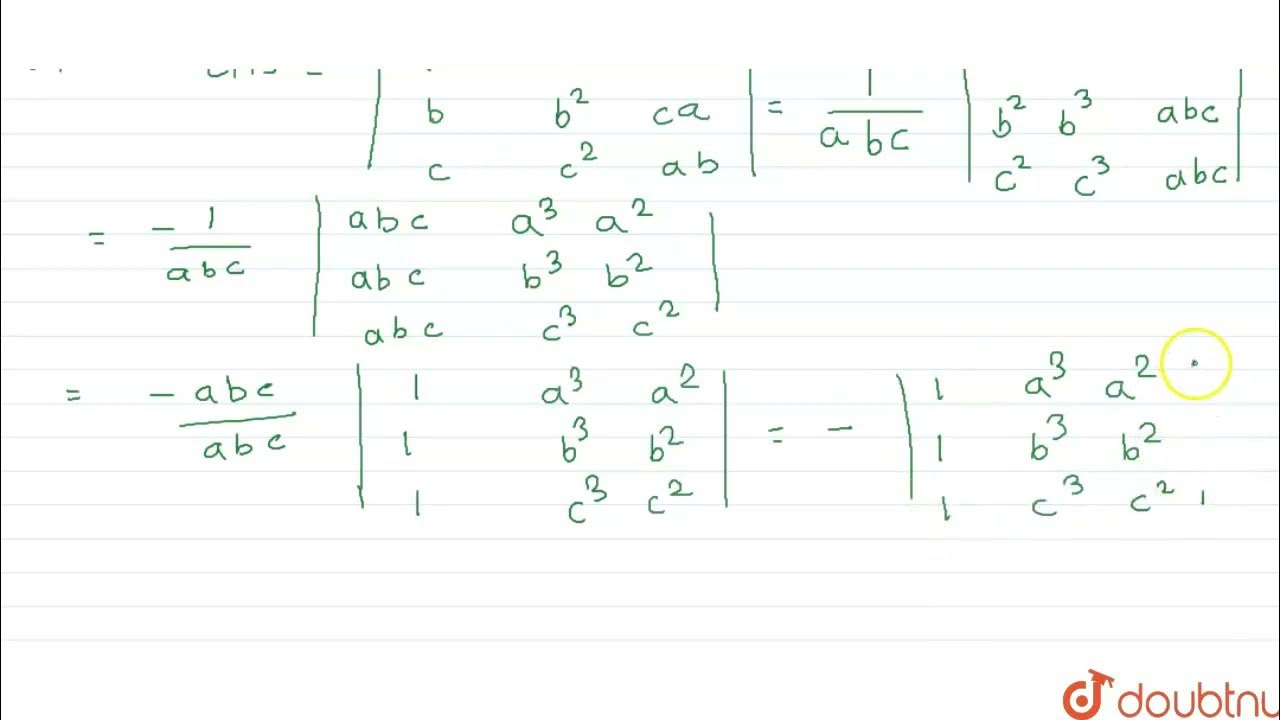 b b² ca = 1/abc b² b³ abc
c c² ab c² c³ abc
= -1/abc | abc a³ a² |
abc b³ b²
abc c³ c²
= -abc/abc | 1 a³ a² | = - | 1 a³ a²
1 b³ b² 1 b³ b²
1 c³ c² 1 c³ c²
doubtnu